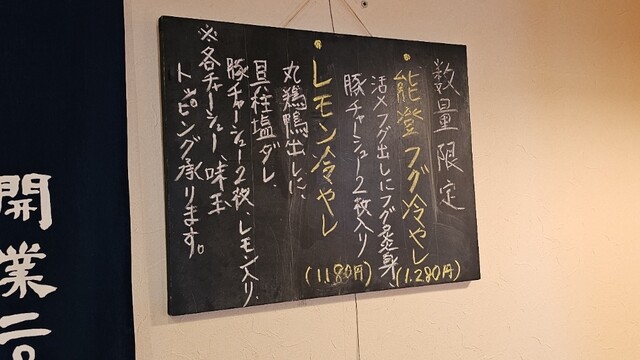 数量限定
能登フグ冷やし
(1.280円)
活〆フグ出しにフグ炙身、
豚チャーシュー2枚入り
レモン冷やし
(1.180円)
丸鶏鴨出しに、
貝柱塩ダレ、
豚チャーシュー2枚、レモン入り、
※各チャーシュー、味玉
トッピング承ります。
開業二〇